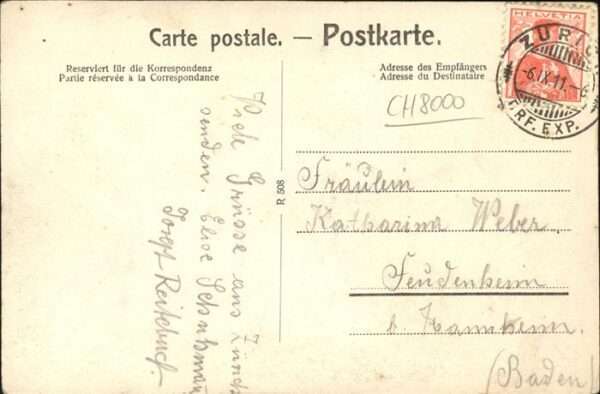 Carte postale. — Postkarte.
Reserviert für die Korrespondenz
Partie réservée à la Correspondance
Adresse des Empfängers
Adresse du Destinataire
HELVETIA
ZÜRIC
-6.IX.11.-6
BRF. EXP.
CH8000
R 508
Viele Grüsse aus Zürich
senden. Elise Schuhmann
Josef
Fräulein
Katharina Weber
Feudenheim
b. Mannheim.
(Baden)